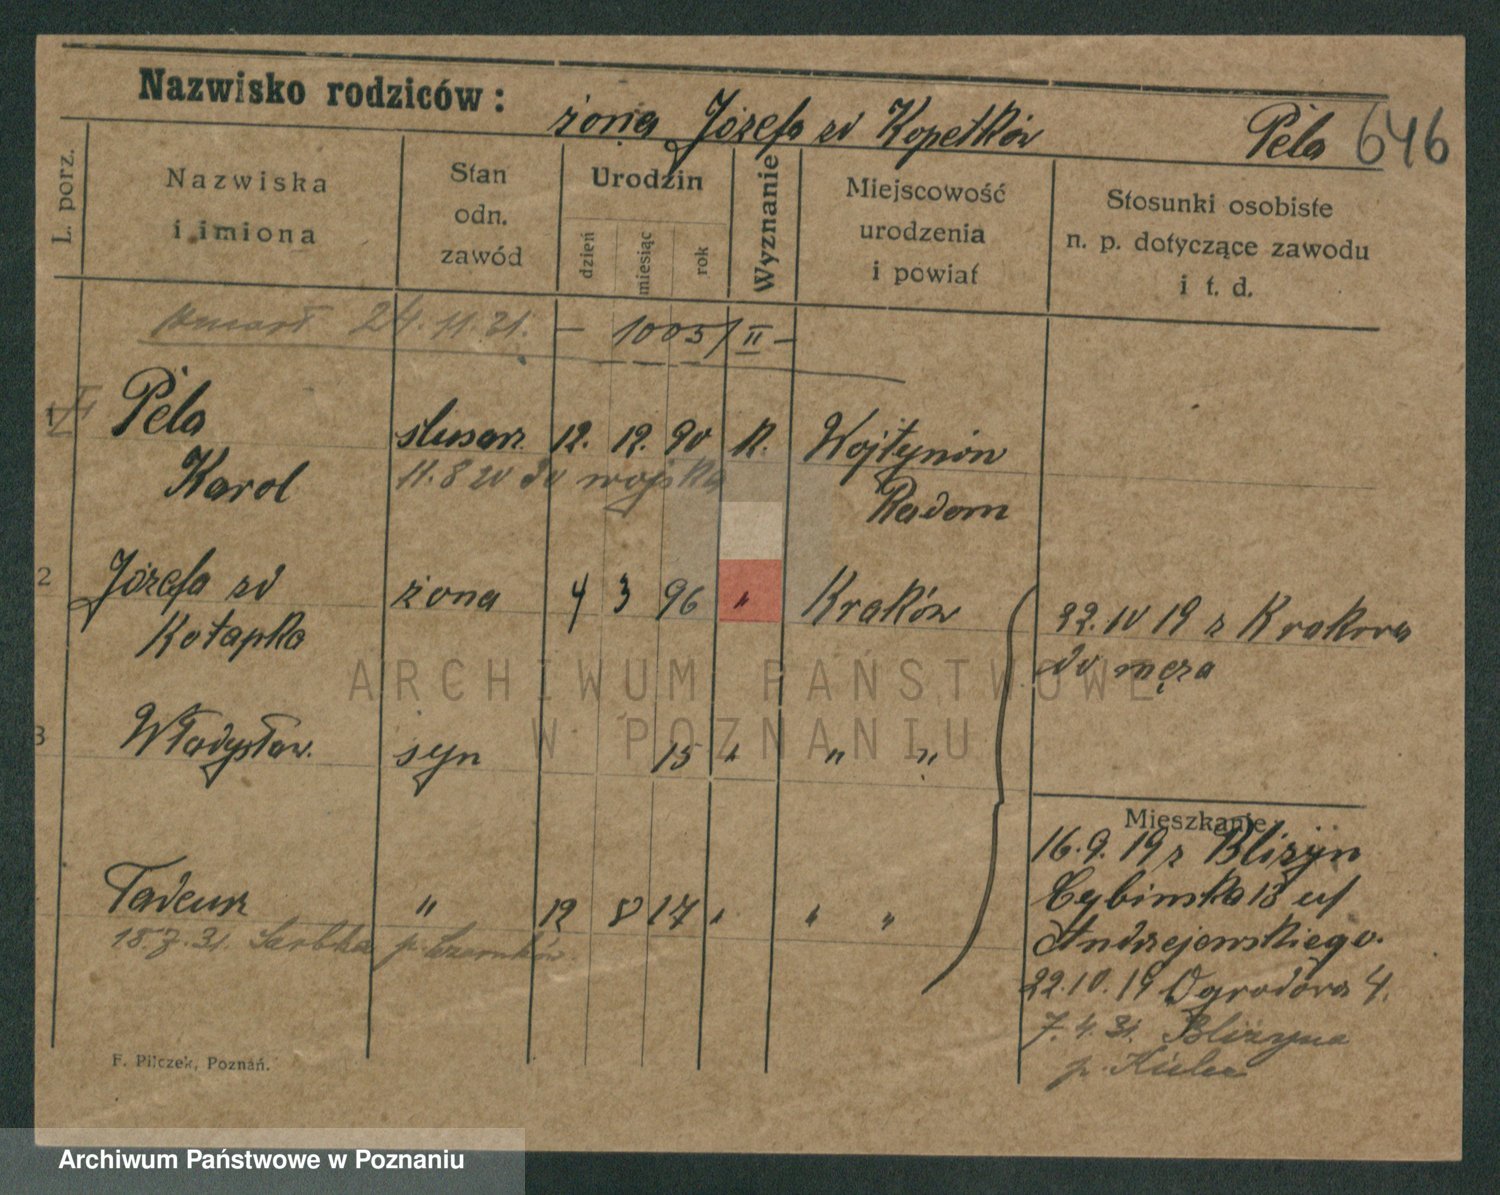 Nazwisko rodziców:
żona Józefa zd Kopetków
Pela 646
L. porz.
Nazwiska
i imiona
Stan
odn.
zawód
Urodzin
dzień
miesiąc
rok
Wyznanie
Miejscowość
urodzenia
i powiat
Stosunki osobiste
n. p. dotyczące zawodu
i t. d.
24.11.21. — 1005/II —
Pela
Karol
slusarz 12. 12. 90 R. Wojtynów
11.8 20 do wojska
Radom
2 Józefa zd
Kołapka
żona 4 3 96 " Kraków
22. IV 19 z Krakowa
do męża
3 Władysław. syn 15 " " "
Mieszkanie
16.9. 19 z Bliżyn
Cybinska 13 u/
Andrzejewskiego.
Tadeusz " 12 8 17 " " "
22.10.19 Ogrodowa 4.
18.7.31. Sarbka p. Czarnków.
7.4.31. Bliżyna
p. Kielce
F. Pilczek, Poznań.
ARCHIWUM PAŃSTWOWE
W POZNANIU
Archiwum Państwowe w Poznaniu